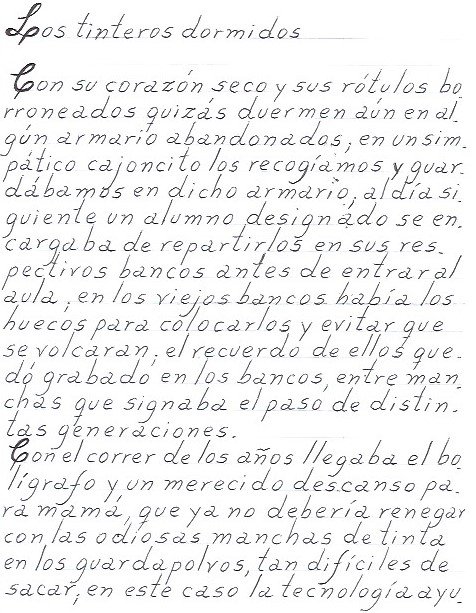 Los tinteros dormidos
Con su corazón seco y sus rótulos bo.
rroneados quizás duermen aún en al.
gún armario abandonados, en un sim.
pático cajoncito los recogíamos y guar.
dábamos en dicho armario, al día si.
guiente un alumno designado se en.
cargaba de repartirlos en sus res.
pectivos bancos antes de entrar al
aula, en los viejos bancos había los
huecos para colocarlos y evitar que
se volcaran, el recuerdo de ellos que.
dó grabado en los bancos, entre man.
chas que signaba el paso de distin.
tas generaciones.
Con el correr de los años llegaba el bo.
lígrafo y un merecido descanso pa.
ra mamá, que ya no debería renegar
con las odiosas manchas de tinta
en los guardapolvos, tan difíciles de
sacar, en este caso la tecnología ayu.